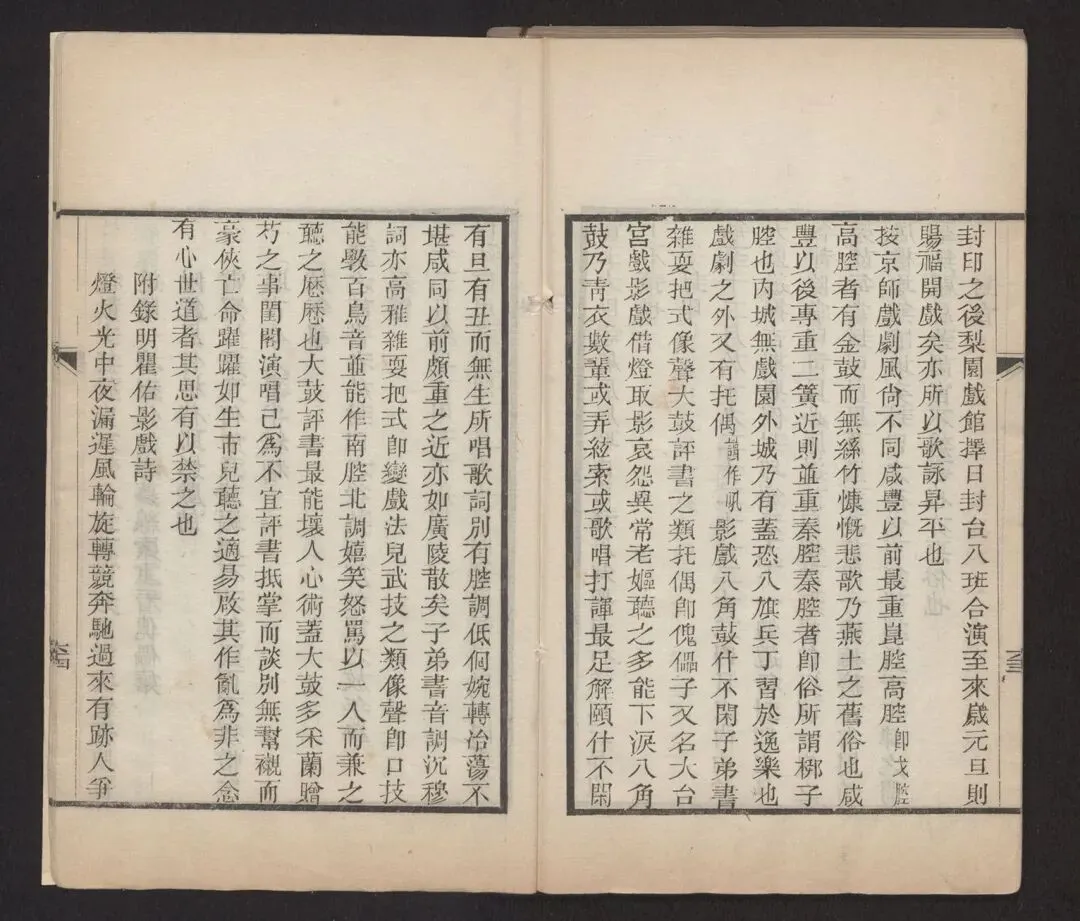 封印之後梨園戲館擇日封台八班合演至來歲元旦則
賜福開戲矣亦所以歌詠昇平也
按京師戲劇風尙不同咸豐以前最重崑腔高腔卽弋腔
高腔者有金鼓而無絲竹慷慨悲歌乃燕土之舊俗也咸
豐以後專重二簧近則並重秦腔秦腔者卽俗所謂梆子
腔也內城無戲園外城乃有蓋恐八旗兵丁習於逸樂也
戲劇之外又有托偶讀作吼影戲八角鼓什不閑子弟書
雜耍把式像聲大鼓評書之類托偶卽傀儡子又名大台
宮戲影戲借燈取影哀怨異常老嫗聽之多能下淚八角
鼓乃靑衣數輩或弄絃索或歌唱打諢最足解頤什不閑
有旦有丑而無生所唱歌詞別有腔調低佪婉轉冶蕩不
堪咸同以前頗重之近亦如廣陵散矣子弟書音調沉穆
詞亦高雅雜耍把式卽變戲法兒武技之類像聲卽口技
能斆百鳥音並能作南腔北調嬉笑怒罵以一人而兼之
聽之歷歷也大鼓評書最能壞人心術蓋大鼓多采蘭贈
芍之事閨閤演唱已爲不宜評書抵掌而談別無幫襯而
豪俠亡命躍躍如生市兒聽之適易啟其作亂爲非之念
有心世道者其思有以禁之也
附錄明瞿佑影戲詩
燈火光中夜漏遲風輪旋轉競奔馳過來有跡人爭